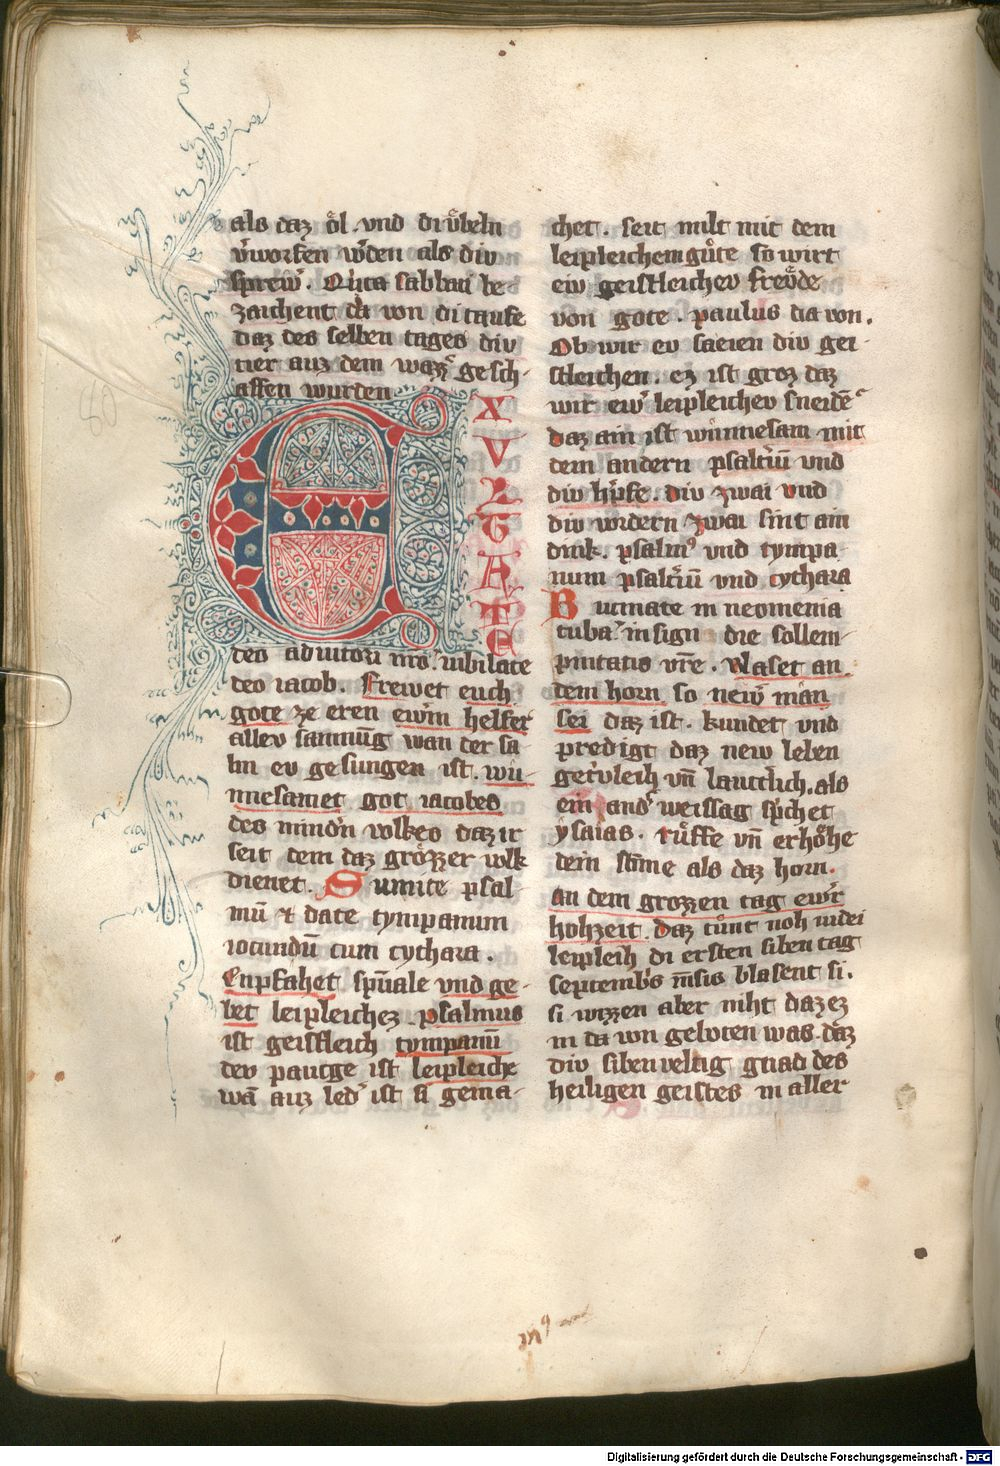 als daz oͤl. vnd di vͤbeln
v̓worfen w̓den als div
sprew̓. Qͥnta sabbati be
zaichent da von di taufe
daz des selben tages div
tier auz dem wazz̓ gesch-
affen wurden
EXVLTATE
deo adiutori nr̄o iubilate
deo iacob. Frewet euch
gote ze eren ewm̄ helfer
allev samnūg wan der sa-
lm ev gesungen ist. wū-
nnesamet got iacobes
des mind̓n volkes daz ir
seit dem daz groͤzzer volk
dienet. Sumite psal-
mū ⁊ date tympanum
iocundū cum cythara.
Enpfahet spūale vnd ge-
bet leipleichez. psalmus
ist geistleich tympanū
dev pauge ist leipleiche
wā auz led̓ ist si gema-
chet. seit milt mit dem
leipleichem guͤte so wirt
eiv geistleichev freuͤde
von gote. paulus da von.
Ob wir ev saeien div gei-
stleichen. ez ist groz daz
wir ew̓ leipleichev sneidē
daz ain ist wunnesam mit
dem andern psaltiū vnd
div h̓pfe. div zwai vnd
div vordern zwai sint ain
dink. psalmꝰ vnd tympa-
num psaltiū vnd cythara
Bucinate in neomenia
tuba in signi die sollem-
pnitatis vr̄e. Blaset an
dem horn so new̓ man
sei daz ist. kundet vnd
predigt daz new leben
getv̓leih vn̄ lautt̓lich. als
ein and̓ weissag sp̓chet
ysaias. ruͤffe vn̄ erhoͤhe
dein stīme als daz horn.
an dem grozzen tag ew̓r
hohzeit. Daz tuͤnt noh iudei
leipleih di ersten siben tag
septemb̓s m̄sis blasent si.
si wizzen aber niht daz ez
in da von geboten was. daz
div sibenveltig gnad des
heiligen geistes in aller
Digitalisierung gefördert durch die Deutsche Forschungsgemeinschaft - DFG